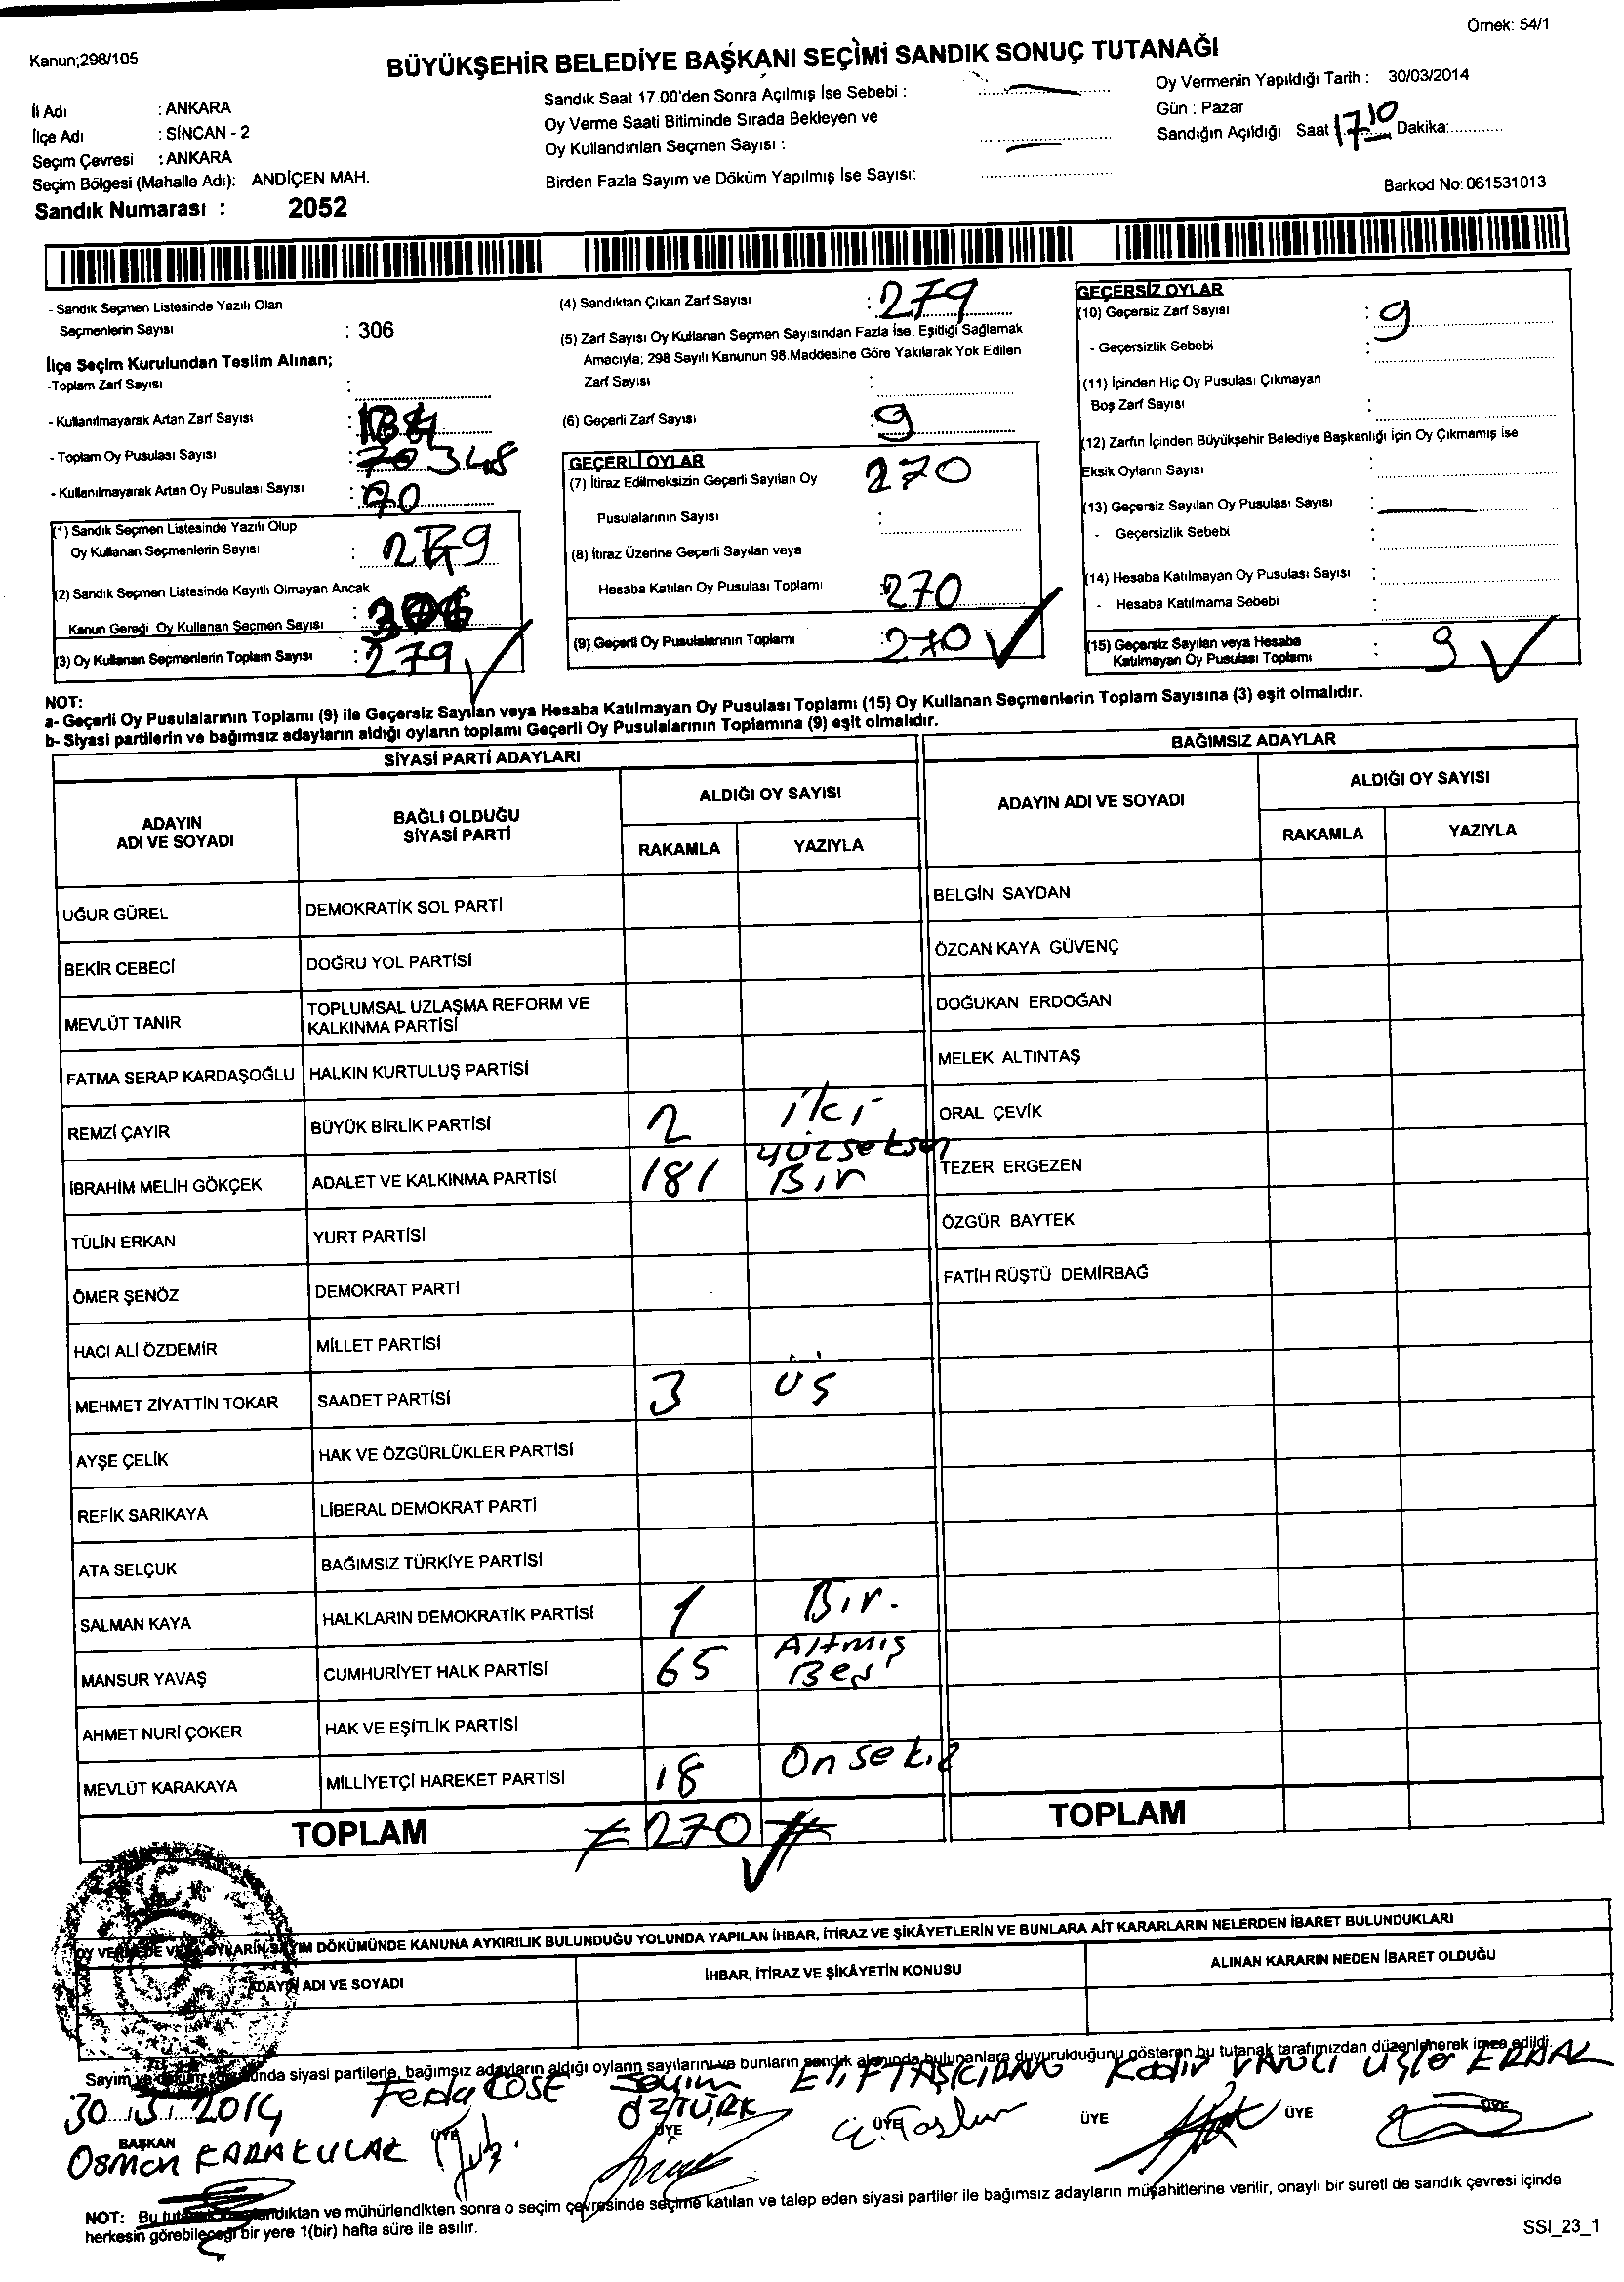 Örnek: 54/1
Kanun;298/105
BÜYÜKŞEHİR BELEDİYE BAŞKANI SEÇİMİ SANDIK SONUÇ TUTANAĞI
İl Adı : ANKARA
İlçe Adı : SİNCAN - 2
Seçim Çevresi : ANKARA
Seçim Bölgesi (Mahalle Adı): ANDİÇEN MAH.
Sandık Numarası : 2052
Sandık Saat 17.00'den Sonra Açılmış İse Sebebi :
Oy Verme Saati Bitiminde Sırada Bekleyen ve
Oy Kullandırılan Seçmen Sayısı :
Birden Fazla Sayım ve Döküm Yapılmış İse Sayısı:
Oy Vermenin Yapıldığı Tarih : 30/03/2014
Gün : Pazar
Sandığın Açıldığı Saat 17 10 Dakika:
Barkod No: 061531013
- Sandık Seçmen Listesinde Yazılı Olan
Seçmenlerin Sayısı : 306
İlçe Seçim Kurulundan Teslim Alınan;
-Toplam Zarf Sayısı :
- Kullanılmayarak Artan Zarf Sayısı :
- Toplam Oy Pusulası Sayısı : 70 348
- Kullanılmayarak Artan Oy Pusulası Sayısı : 70
(1) Sandık Seçmen Listesinde Yazılı Olup
Oy Kullanan Seçmenlerin Sayısı : 279
(2) Sandık Seçmen Listesinde Kayıtlı Olmayan Ancak
Kanun Gereği Oy Kullanan Seçmen Sayısı :
(3) Oy Kullanan Seçmenlerin Toplam Sayısı : 279
(4) Sandıktan Çıkan Zarf Sayısı : 279
(5) Zarf Sayısı Oy Kullanan Seçmen Sayısından Fazla İse, Eşitliği Sağlamak
Amacıyla; 298 Sayılı Kanunun 98.Maddesine Göre Yakılarak Yok Edilen
Zarf Sayısı :
(6) Geçerli Zarf Sayısı : 9
GEÇERLİ OYLAR
(7) İtiraz Edilmeksizin Geçerli Sayılan Oy 270
Pusulalarının Sayısı :
(8) İtiraz Üzerine Geçerli Sayılan veya
Hesaba Katılan Oy Pusulası Toplamı : 270
(9) Geçerli Oy Pusulalarının Toplamı : 270
GEÇERSİZ OYLAR
(10) Geçersiz Zarf Sayısı : 9
- Geçersizlik Sebebi :
(11) İçinden Hiç Oy Pusulası Çıkmayan
Boş Zarf Sayısı :
(12) Zarfın İçinden Büyükşehir Belediye Başkanlığı İçin Oy Çıkmamış İse
Eksik Oyların Sayısı :
(13) Geçersiz Sayılan Oy Pusulası Sayısı :
- Geçersizlik Sebebi :
(14) Hesaba Katılmayan Oy Pusulası Sayısı :
- Hesaba Katılmama Sebebi :
(15) Geçersiz Sayılan veya Hesaba
Katılmayan Oy Pusulası Toplamı : 9
NOT:
a- Geçerli Oy Pusulalarının Toplamı (9) ile Geçersiz Sayılan veya Hesaba Katılmayan Oy Pusulası Toplamı (15) Oy Kullanan Seçmenlerin Toplam Sayısına (3) eşit olmalıdır.
b- Siyasi partilerin ve bağımsız adayların aldığı oyların toplamı Geçerli Oy Pusulalarının Toplamına (9) eşit olmalıdır.
SİYASİ PARTİ ADAYLARI
ADAYIN ADI VE SOYADI
BAĞLI OLDUĞU SİYASİ PARTİ
ALDIĞI OY SAYISI
RAKAMLA YAZIYLA
UĞUR GÜREL DEMOKRATİK SOL PARTİ
BEKİR CEBECİ DOĞRU YOL PARTİSİ
MEVLÜT TANIR TOPLUMSAL UZLAŞMA REFORM VE
KALKINMA PARTİSİ
FATMA SERAP KARDAŞOĞLU HALKIN KURTULUŞ PARTİSİ
REMZİ ÇAYIR BÜYÜK BİRLİK PARTİSİ 2 iki
İBRAHİM MELİH GÖKÇEK ADALET VE KALKINMA PARTİSİ 181 yüzseksen
Bir
TÜLİN ERKAN YURT PARTİSİ
ÖMER ŞENÖZ DEMOKRAT PARTİ
HACI ALİ ÖZDEMİR MİLLET PARTİSİ
MEHMET ZİYATTİN TOKAR SAADET PARTİSİ 3 üş
AYŞE ÇELİK HAK VE ÖZGÜRLÜKLER PARTİSİ
REFİK SARIKAYA LİBERAL DEMOKRAT PARTİ
ATA SELÇUK BAĞIMSIZ TÜRKİYE PARTİSİ
SALMAN KAYA HALKLARIN DEMOKRATİK PARTİSİ 1 Bir.
MANSUR YAVAŞ CUMHURİYET HALK PARTİSİ 65 Altmış
Beş
AHMET NURİ ÇOKER HAK VE EŞİTLİK PARTİSİ
MEVLÜT KARAKAYA MİLLİYETÇİ HAREKET PARTİSİ 18 Onsekiz
TOPLAM 270
BAĞIMSIZ ADAYLAR
ADAYIN ADI VE SOYADI
ALDIĞI OY SAYISI
RAKAMLA YAZIYLA
BELGİN SAYDAN
ÖZCAN KAYA GÜVENÇ
DOĞUKAN ERDOĞAN
MELEK ALTINTAŞ
ORAL ÇEVİK
TEZER ERGEZEN
ÖZGÜR BAYTEK
FATİH RÜŞTÜ DEMİRBAĞ
TOPLAM
OY VERMEDE VEYA OYLARIN SAYIM DÖKÜMÜNDE KANUNA AYKIRILIK BULUNDUĞU YOLUNDA YAPILAN İHBAR, İTİRAZ VE ŞİKÂYETLERİN VE BUNLARA AİT KARARLARIN NELERDEN İBARET BULUNDUKLARI
ADAYIN ADI VE SOYADI
İHBAR, İTİRAZ VE ŞİKÂYETİN KONUSU
ALINAN KARARIN NEDEN İBARET OLDUĞU
Sayım ve döküm sonunda siyasi partilerle, bağımsız adayların aldığı oyların sayılarını ve bunların sandık alanında bulunanlara duyurulduğunu gösteren bu tutanak tarafımızdan düzenlenerek imza edildi.
30 3 2014
Feda KÖSE
ÖZTÜRK
Elif TAŞKIRAN
Kadir
ERDAL
BAŞKAN ÜYE ÜYE ÜYE ÜYE ÜYE
Osman KARAKULAK
NOT: Bu tutanak imzalandıktan ve mühürlendikten sonra o seçim çevresinde seçime katılan ve talep eden siyasi partiler ile bağımsız adayların müşahitlerine verilir, onaylı bir sureti de sandık çevresi içinde
herkesin görebileceği bir yere 1(bir) hafta süre ile asılır.
SSI_23_1